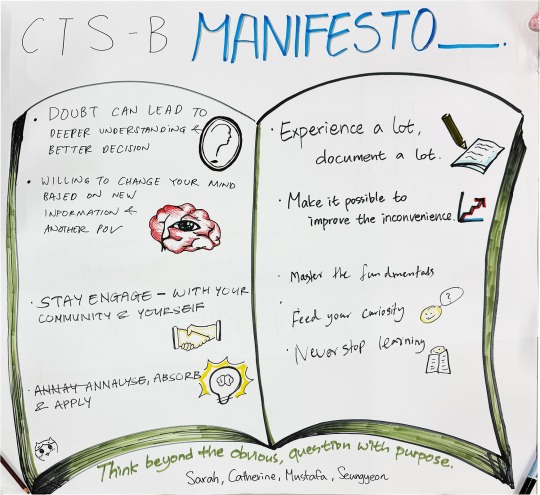 CTS-B MANIFESTO__.
• DOUBT CAN LEAD TO
DEEPER UNDERSTANDING &
BETTER DECISION
• WILLING TO CHANGE YOUR MIND
BASED ON NEW
INFORMATION &
ANOTHER POV
• STAY ENGAGE – WITH YOUR
COMMUNITY & YOURSELF
• ANNAY ANNALYSE, ABSORB
& APPLY
• Experience a lot,
document a lot.
• Make it possible to
improve the inconvenience.
• Master the fundmentals
• Feed your curiosity
?
• Never stop learning
Think beyond the obvious, question with purpose.
Sarah, Catherine, Mustafa, Seungyeon